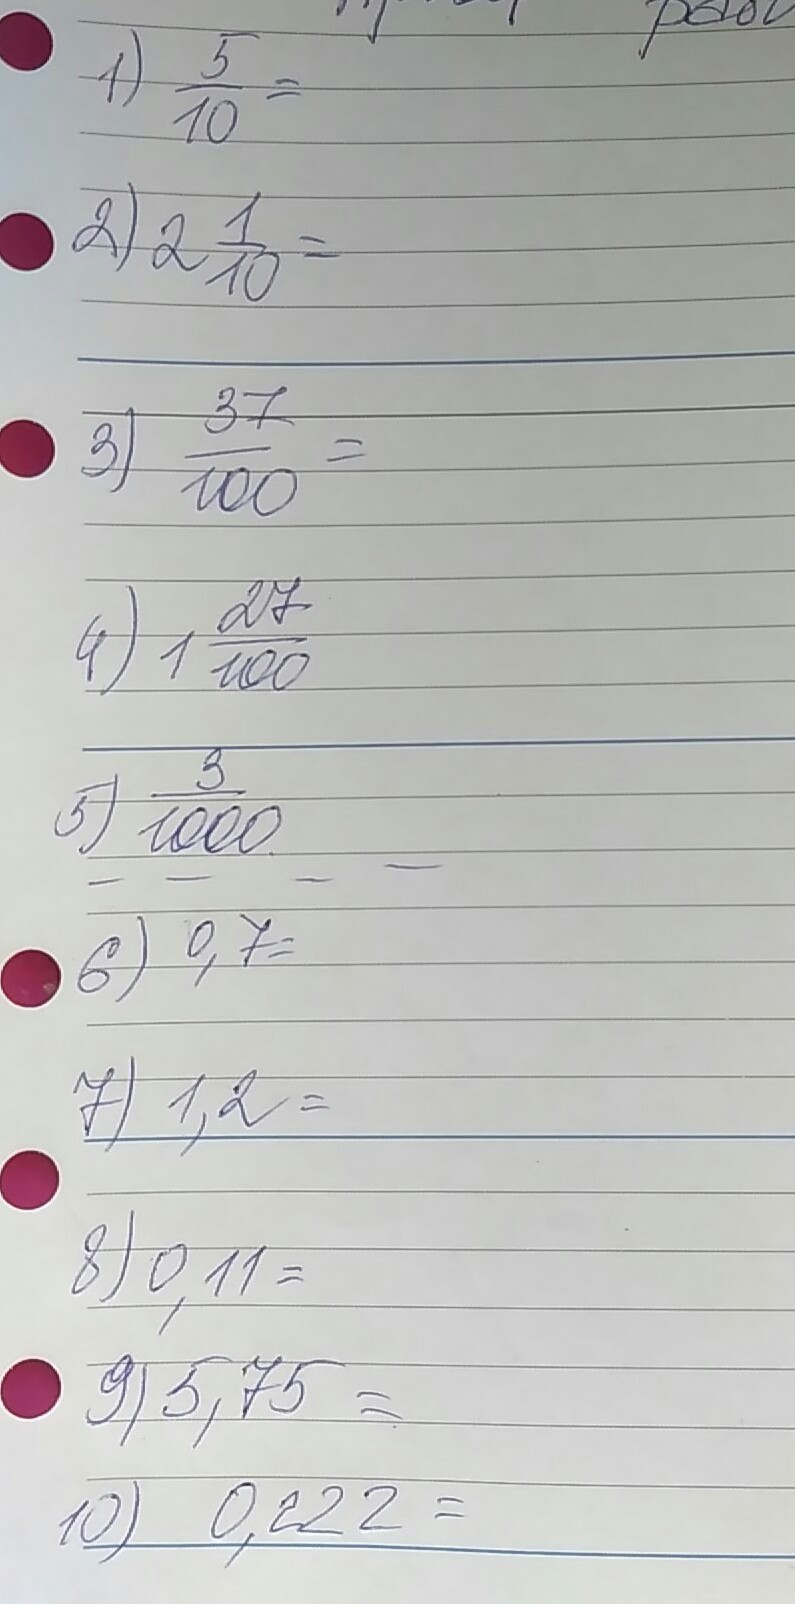 1) 5/10 =
2) 2 1/10 =
3) 37/100 =
4) 1 27/100
5) 3/1000
– – – –
6) 0,7=
7) 1,2=
8) 0,11=
9) 5,75 =
10) 0,222 =